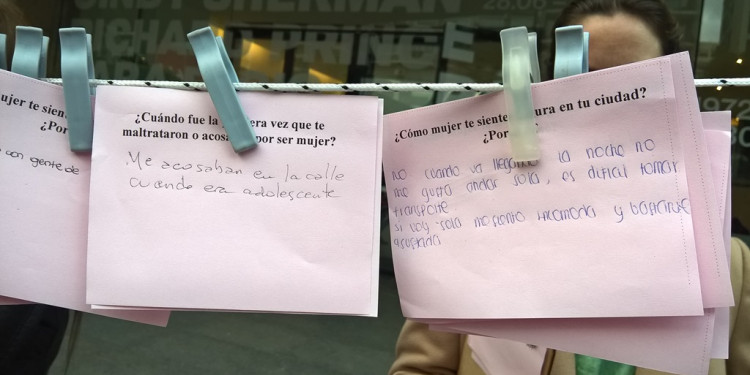 CINDY SHERMAN
RICHARD PRINCE
28.06
972
ujer te sien
¿Por
con gente de
¿Cuándo fue la era vez que te
maltrataron o acosa por ser mujer?
Me acosaban en la calle
cuando era adolescente
¿Cómo mujer te siente ura en tu ciudad?
¿Por
no cuando va llegan la noche no
me gusta andar sola, es dificil tomar
transporte
si voy sola me siento incomoda y bastante
asustada